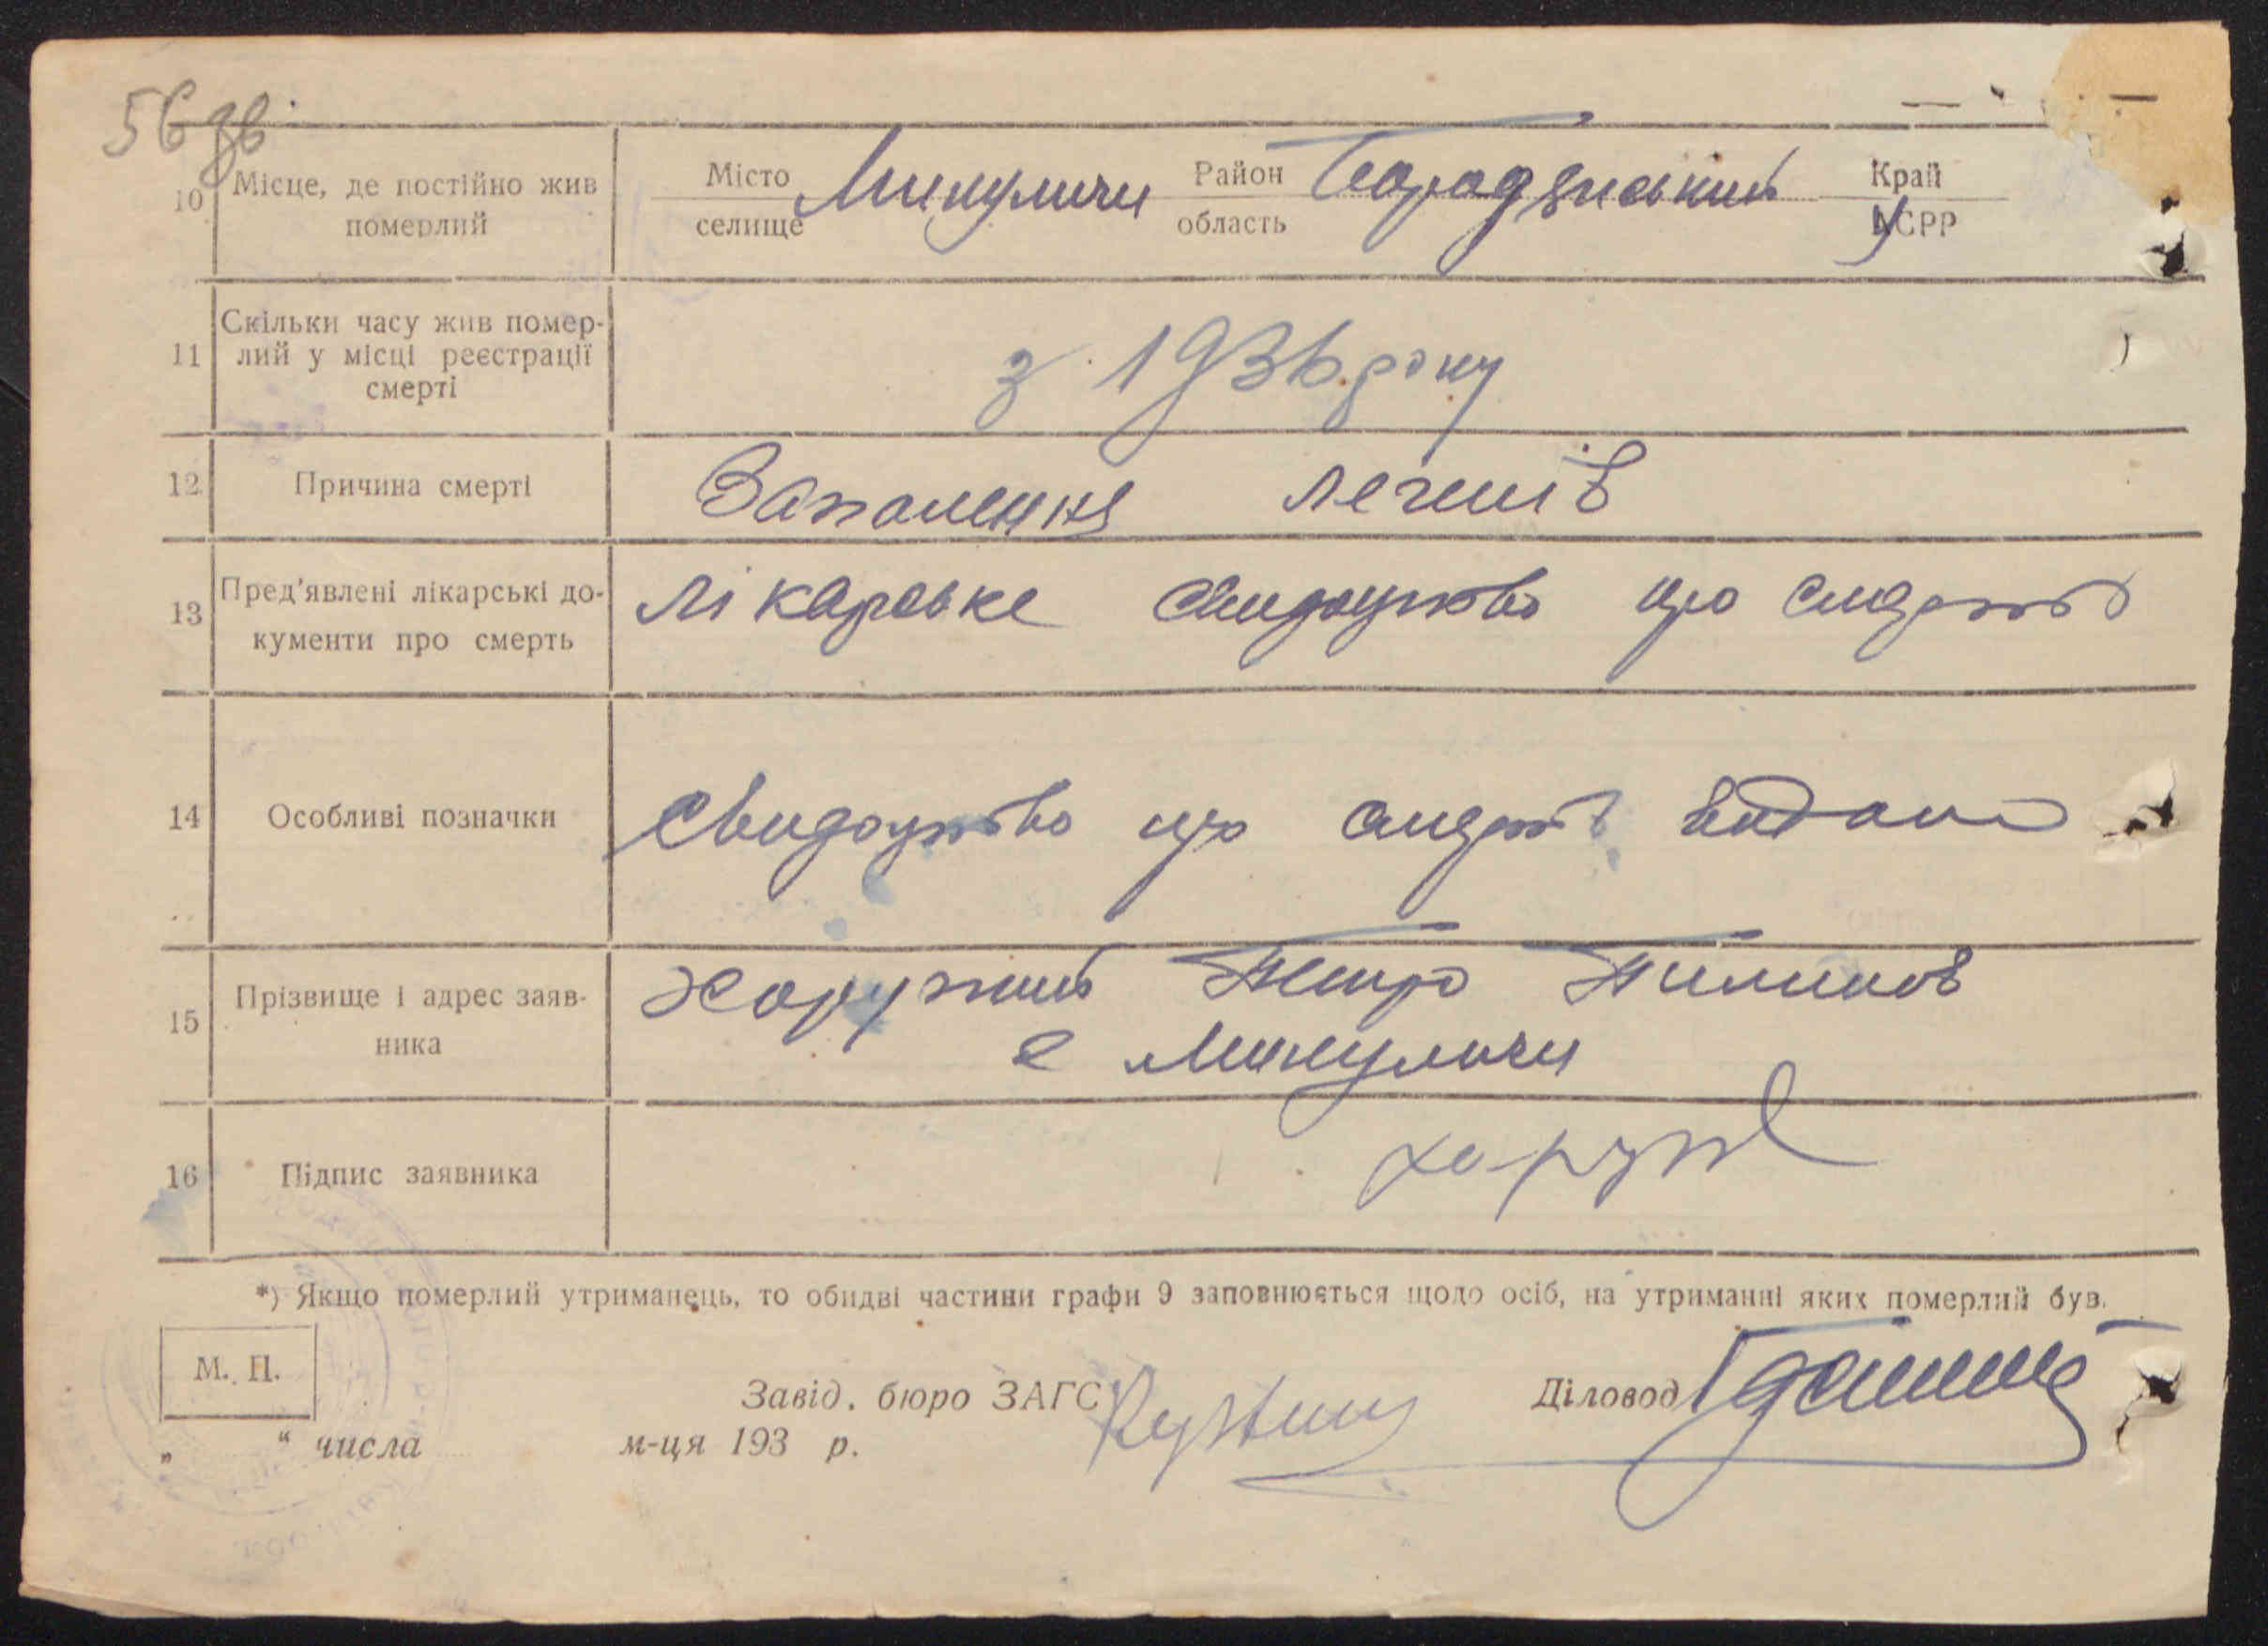 56 зв
10 Місце, де постійно жив померлий
Місто селище Микуличи Район область Бородянський Край УСРР
11 Скільки часу жив помер-
лий у місці реєстрації
смерті
з 1936 року
12 Причина смерті Запалення легенів
13 Пред'явлені лікарські до-
кументи про смерть
Лікарське свидоцтво про смерть
14 Особливі позначки Свидоцтво про смерть видано
15 Прізвище і адрес заяв-
ника
Хоружий Петро Пилипов
с Микуличи
16 Підпис заявника Хоруж
*) Якщо померлий утриманець, то обидві частини графи 9 заповнюється щодо осіб, на утриманні яких померлий був.
М. П.
Завід. бюро ЗАГС Діловод
„ “ числа м-ця 193 р.